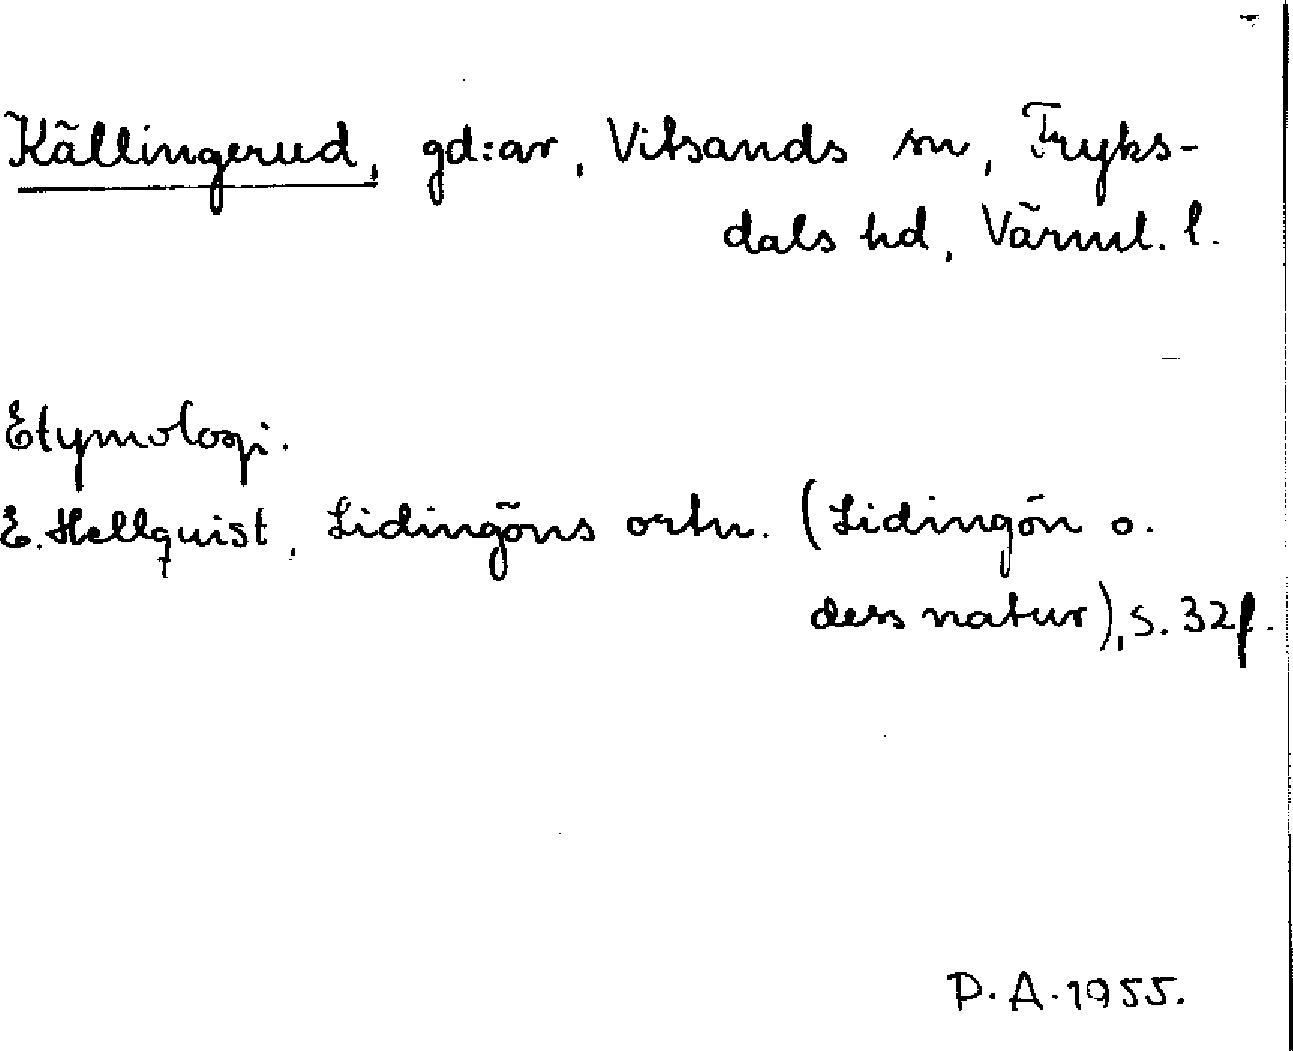 Källingerud, gd:ar, Vitsands sn, Fryks-
dals hd, Värml. l.
Etymologi.
E. Hellquist, Lidingöns ortn. (Lidingön o.
dess natur), s. 32f.
P. A. 1955.